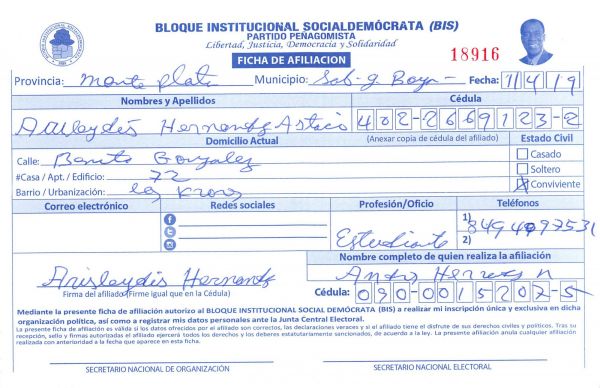 BLOQUE INSTITUCIONAL SOCIALDEMÓCRATA (BIS)
PARTIDO PEÑAGOMISTA
Libertad, Justicia, Democracia y Solidaridad
FICHA DE AFILIACION
18916
Provincia: Monte Plata Municipio: Sab-g Boya- Fecha: 1/4/19
Nombres y Apellidos Cédula
Arisleydis Hernandz Astacio 402-2669123-2
Domicilio Actual (Anexar copia de cédula del afiliado) Estado Civil
Calle: Benito Gonzalez Casado
#Casa / Apt. / Edificio: 72 Soltero
Barrio / Urbanización: Conviviente
Correo electrónico Redes sociales Profesión/Oficio Teléfonos
1) 8494097531
Estudiante 2)
Nombre completo de quien realiza la afiliación
Arisleydis Hernandz
Firma del afiliado (Firme igual que en la Cédula) Cédula: 090-0015207-5
Mediante la presente ficha de afiliación autorizo al BLOQUE INSTITUCIONAL SOCIAL DEMÓCRATA (BIS) a realizar mi inscripción única y exclusiva en dicha
organización política, así como a registrar mis datos personales ante la Junta Central Electoral.
La presente ficha de afiliación es válida si los datos ofrecidos por el afiliado son correctos, las declaraciones veraces y si el afiliado tiene el disfrute de sus derechos civiles y políticos. Tras su
recepción, sello y firmas autorizadas el afiliado ejercerá todos los derechos y los deberes estatutariamente sancionados, de acuerdo a la ley. La presente afiliación anula cualquier afiliación
realizada con anterioridad a la fecha que aparece en esta ficha.
SECRETARIO NACIONAL DE ORGANIZACIÓN SECRETARIO NACIONAL ELECTORAL